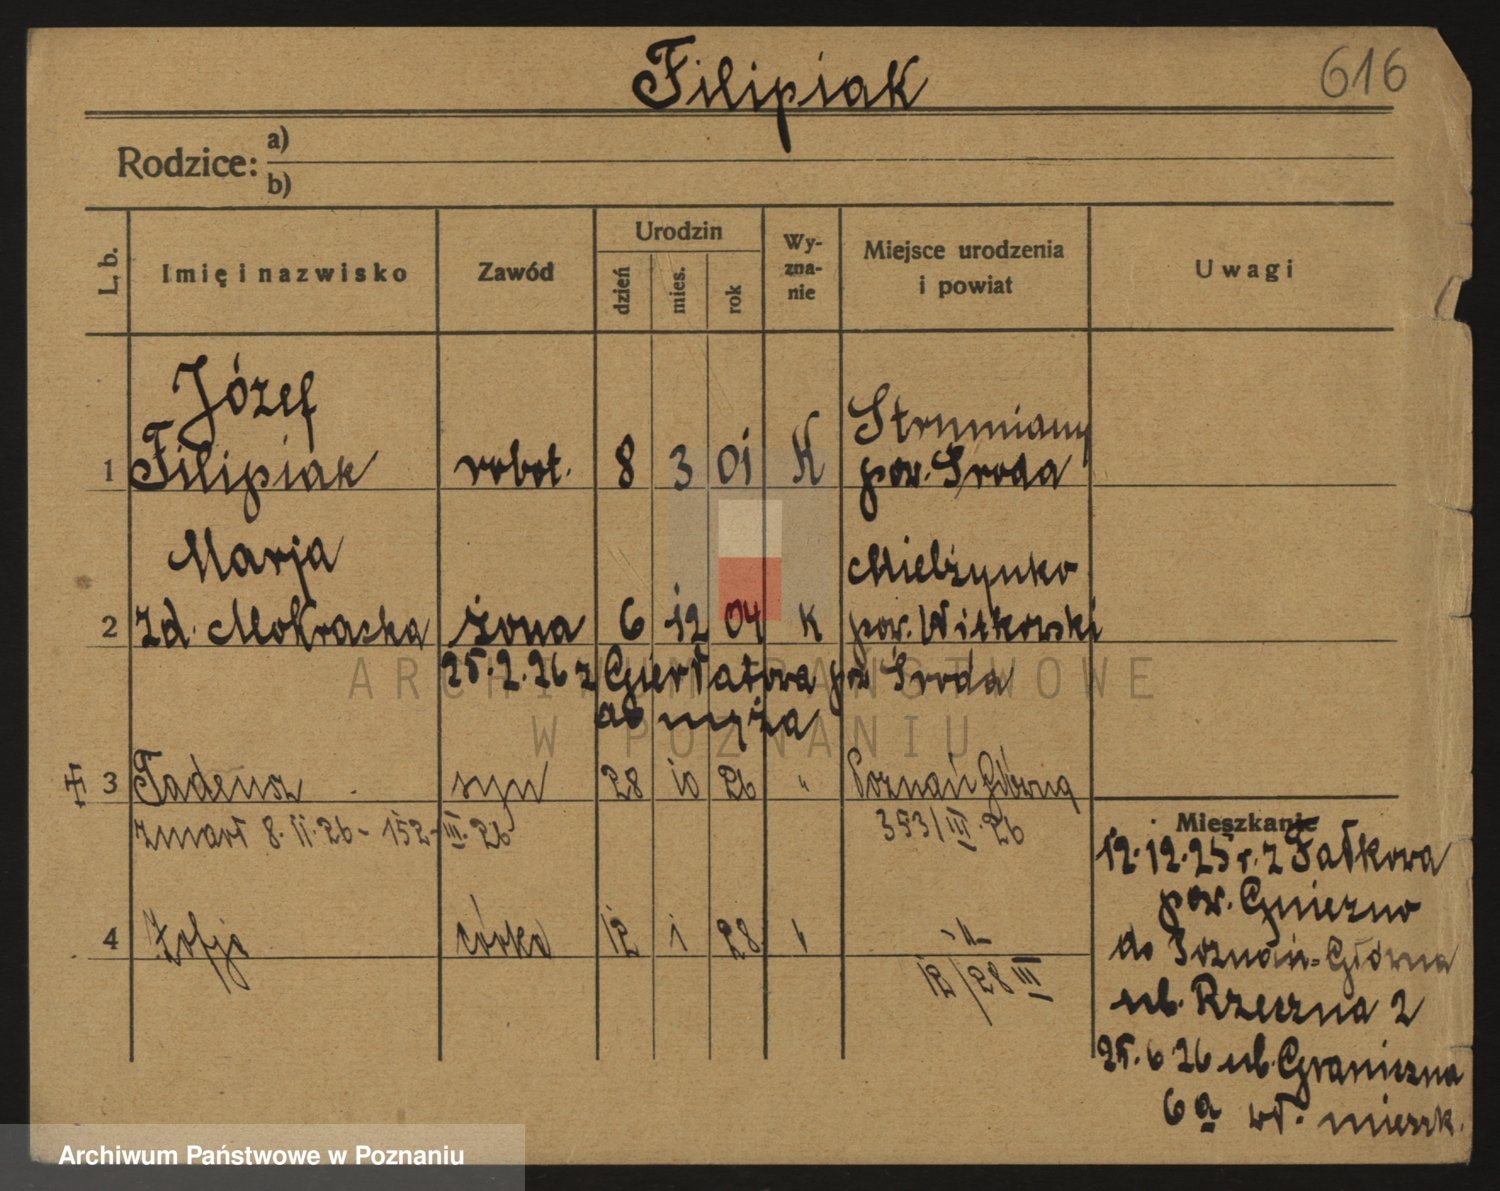 Filipiak
616
Rodzice: a)
b)
L. b.
Imię i nazwisko
Zawód
Urodzin
dzień
mies.
rok
Wy-
zna-
nie
Miejsce urodzenia
i powiat
Uwagi
Józef
1 Filipiak robot. 8 3 01 K
Strumiany
pow. Środa
Marja
2 zd. Mokracka żona 6 12 04 K
Mielżynko
pow. Witkowski
25.2.26 z Gierłatowa pow Środa
do męża
3 Tadeusz syn 28 10 26 " Poznań Główna
zmarł 8.11.26 - 152-III.26
353/III.26
4 Zofja córka 12 1 28 " -"-
12/28 III
Mieszkanie
12.12.25 r. z Fałkowa
pow. Gniezno
do Poznań-Główna
ul. Rzeczna 2
25.6 26 ul. Graniczna
6a wł. mieszk.
ARCHIWUM PAŃSTWOWE
W POZNANIU
Archiwum Państwowe w Poznaniu